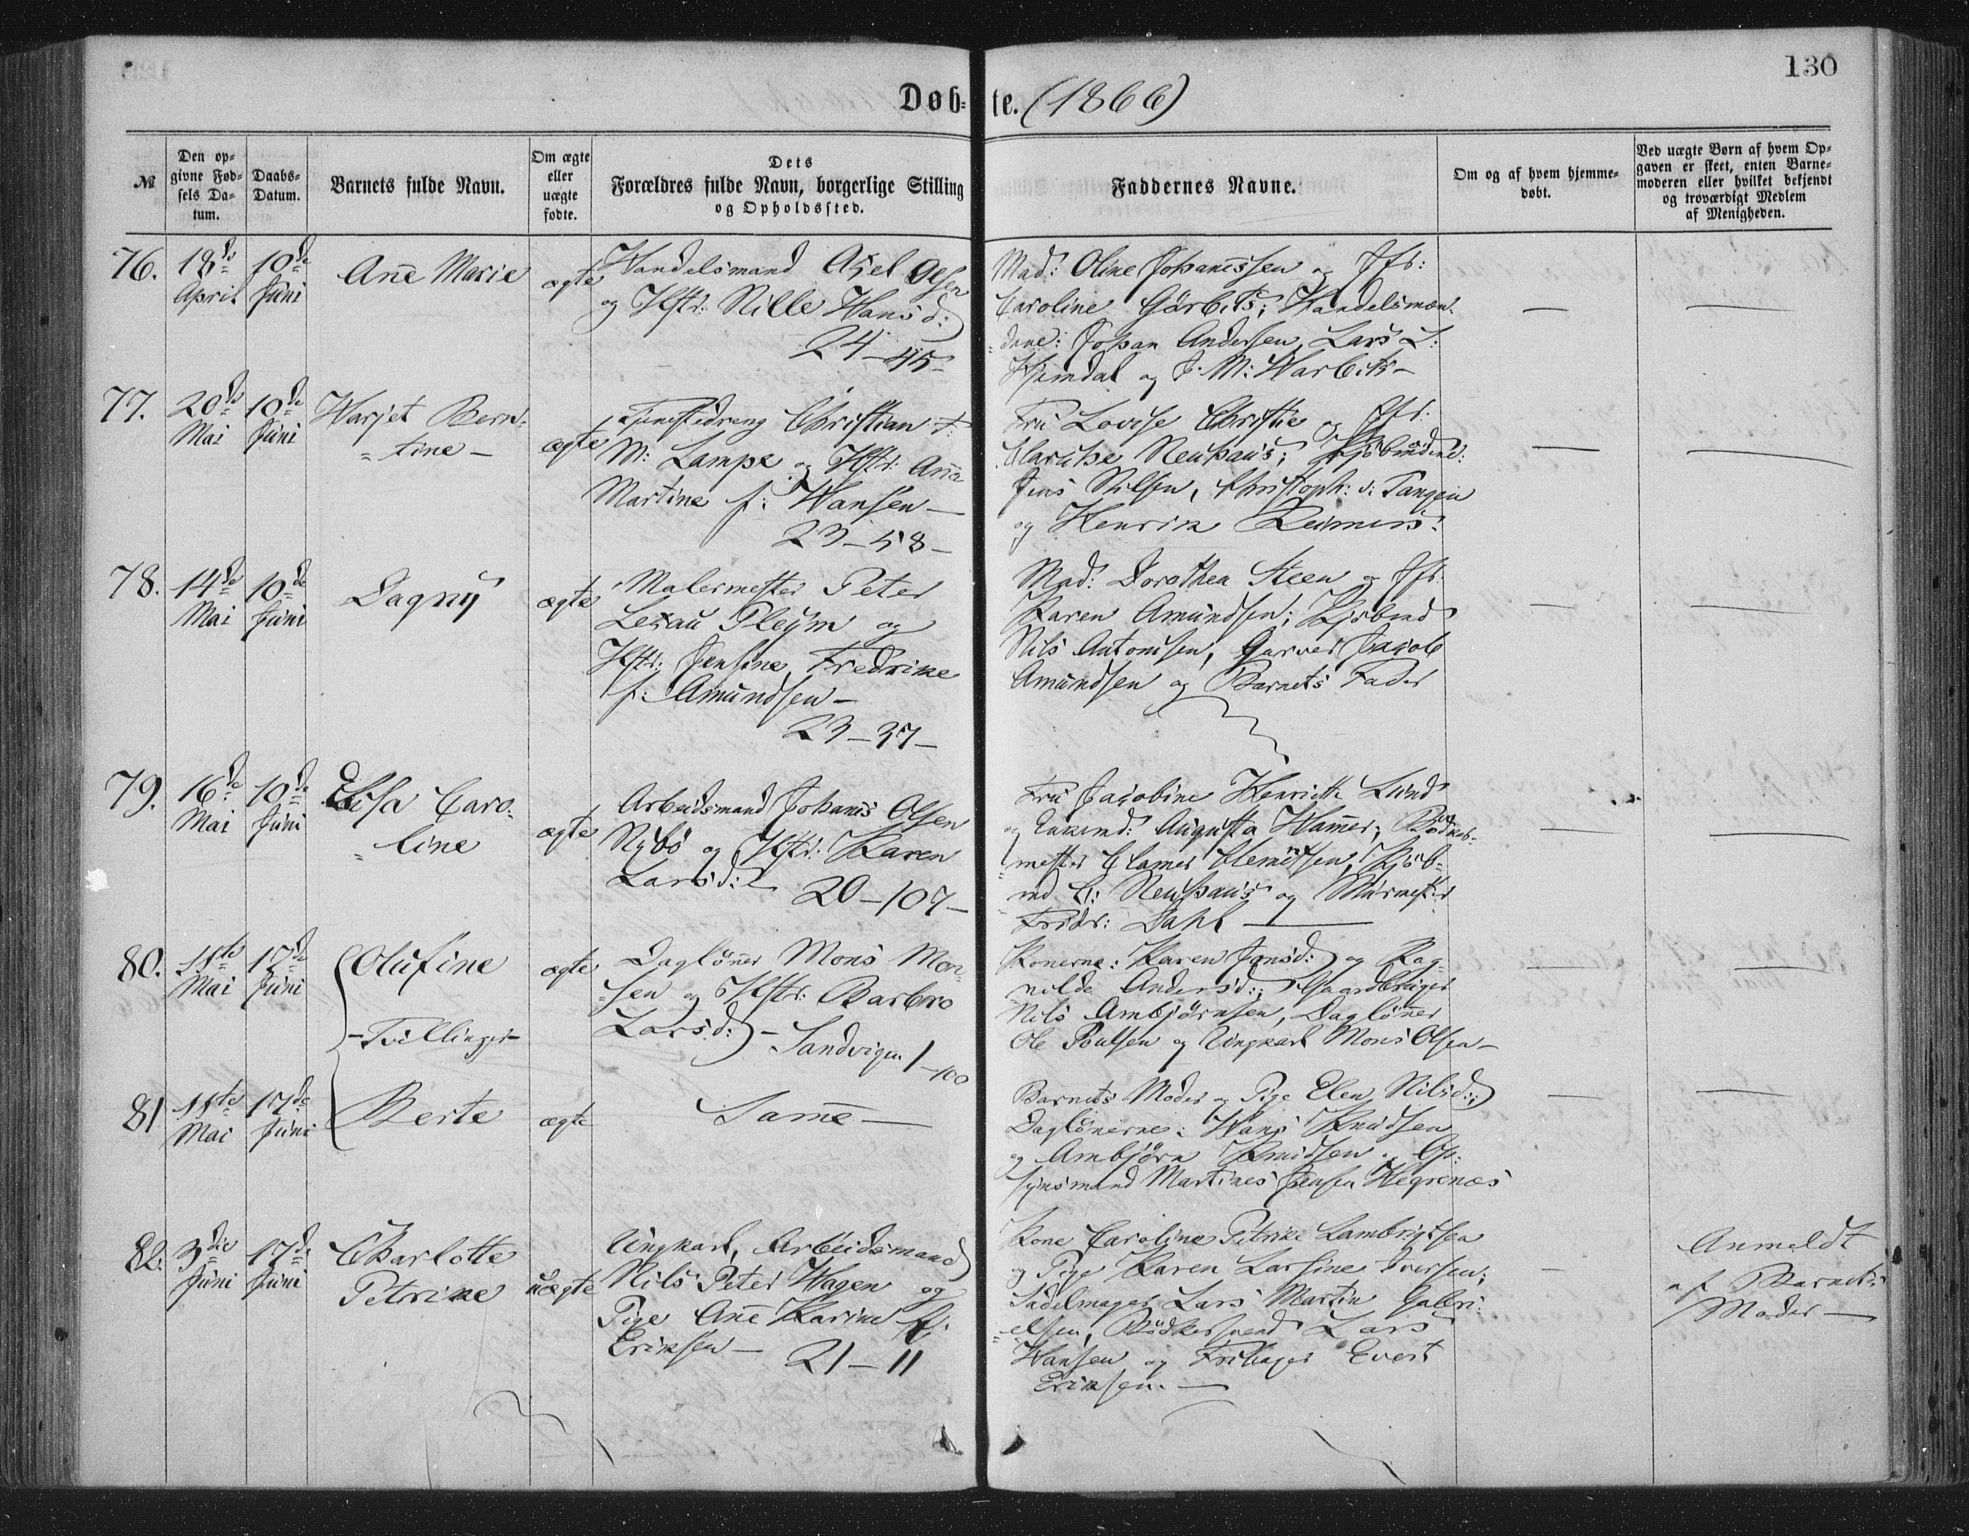 130
Døb- te. (1866)
№
Den op-
givne Fød-
sels Da-
tum.
Daabs-
Datum.
Barnets fulde Navn.
Om ægte
eller
uægte
fødte.
Dets
Forældres fulde Navn, borgerlige Stilling
og Opholdssted.
Faddernes Navne.
Om og af hvem hjemme-
døbt.
Ved uægte Børn af hvem Op-
gaven er skeet, enten Barne-
moderen eller hvilket bekjendt
og troværdigt Medlem
af Menigheden.
76.
18de
April
10de
Juni
Ane Marie
ægte
Handelsmand Axel Olsen
og Hstr: Nille Hansd:
24-45-
Mad: Oline Johanessen og Jfr:
Caroline Garbits; Handelsmæn-
dene: Johan Andersen, Lars L:
Hjemdal og J. M: Warbits-
77.
20de
Mai
10de
Juni
Harjet Bern-
tine-
ægte
Christian F:
M: Lampe og Hstr: Anna
Martine f: Hansen-
23-58-
Fru Lovise Christie og Jfr:
Neuhaus; Kjøbmdene:
Jens Nilsen, Christoph: v: Tangen
og Henrik Reimers.
78.
14de
Mai
10de
Juni
Dagny
ægte
Malermester Peter
Lexau Pleym og
Hstr: Jensine Fredrikke
f: Amundsen-
23-37-
Mad: Dorothea Steen og Jfr:
Karen Amundsen; Kjøbmd
Nils Antonisen, Garver Jacob
Amundsen og Barnets Fader
79.
16de
Mai
10de
Juni
Elisa Caro-
line
ægte
Arbeidsmand Johanes Olsen
Nybø og Hstr: Karen
Larsd:
20-107-
Fru Jacobine Henriette Lund
og Augusta Hamer; Bødker-
mester Clamer Clemetsen, Kjøb-
md C: Neuhaus og Murmester
Fridr: Dahl
80.
11te
Mai
17de
Juni
Olufine
-Tvillinger-
ægte
Dagløner Mons Mon-
sen og Hstr: Barbro
Larsd:-
Sandvigen 1-100
Konerne: Karen Jonsd: og Rag-
nilde Andersd:; Gaardbruger
Nils Ambjørnsen, Dagløner
Ole Poulsen og Ungkarl Mons Olsen-
81
11te
Mai
17de
Juni
Berte
ægte
Same-
Barnets Moder og Pige Elen Nilsd:;
Daglønerne: Hans Knudsen
og Ambjørn Knudsen. Op-
synsmand Martines Jensen Hegrenæs
82.
3die
Juni
17de
Juni
Charlotte
Petrine
uægte
Ungkarl, Arbeidsmand
Nils Peter Hagen og
Pige Ane Karine f:
Eriksen-
21-11
Kone Caroline Petrike Lambrigtsen
og Pige Karen Larsine Iversen;
Sadelmager Lars Martin Gabri-
elsen, Bødkersvend Lars
Hansen og Evert
Eriksen.-
Anmeldt
af Barnets
Moder-